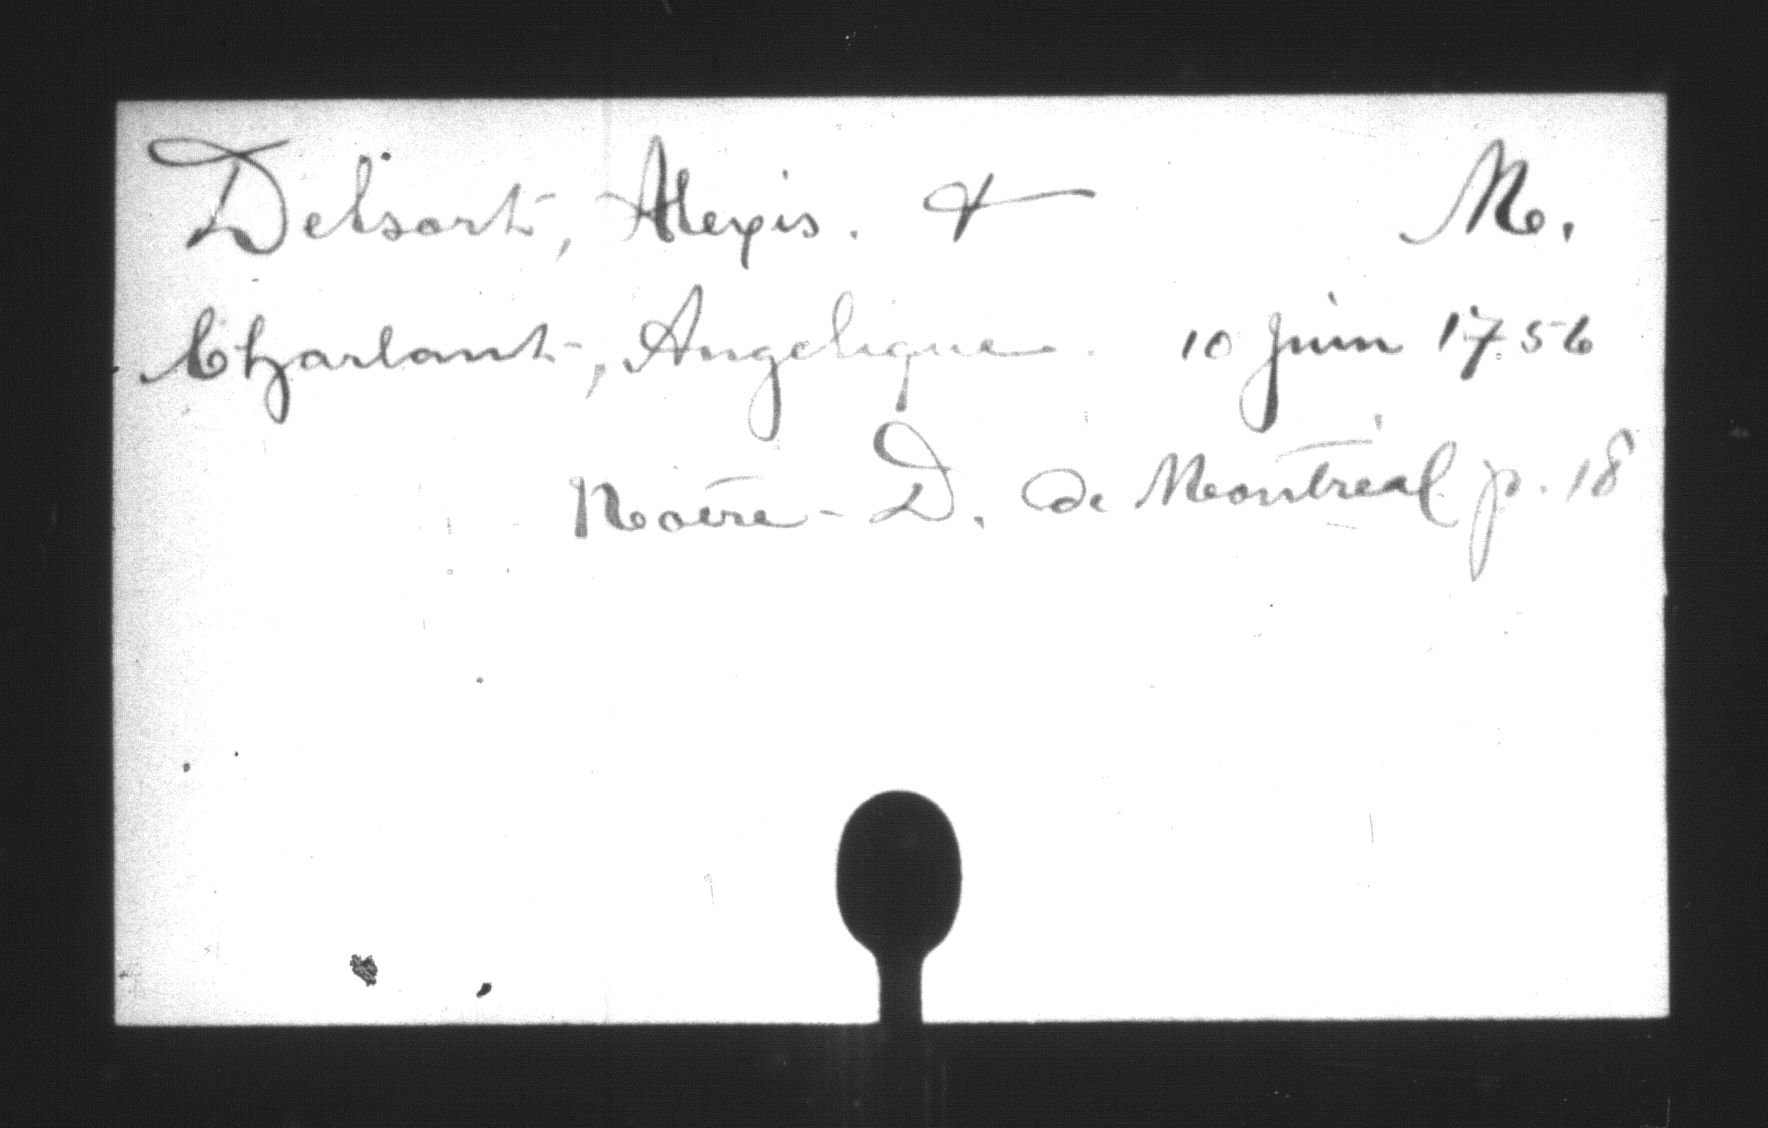 Delsort, Alexis. & M.
Charlant, Angelique. 10 Juin 1756
Notre-D. de Montréal p. 18